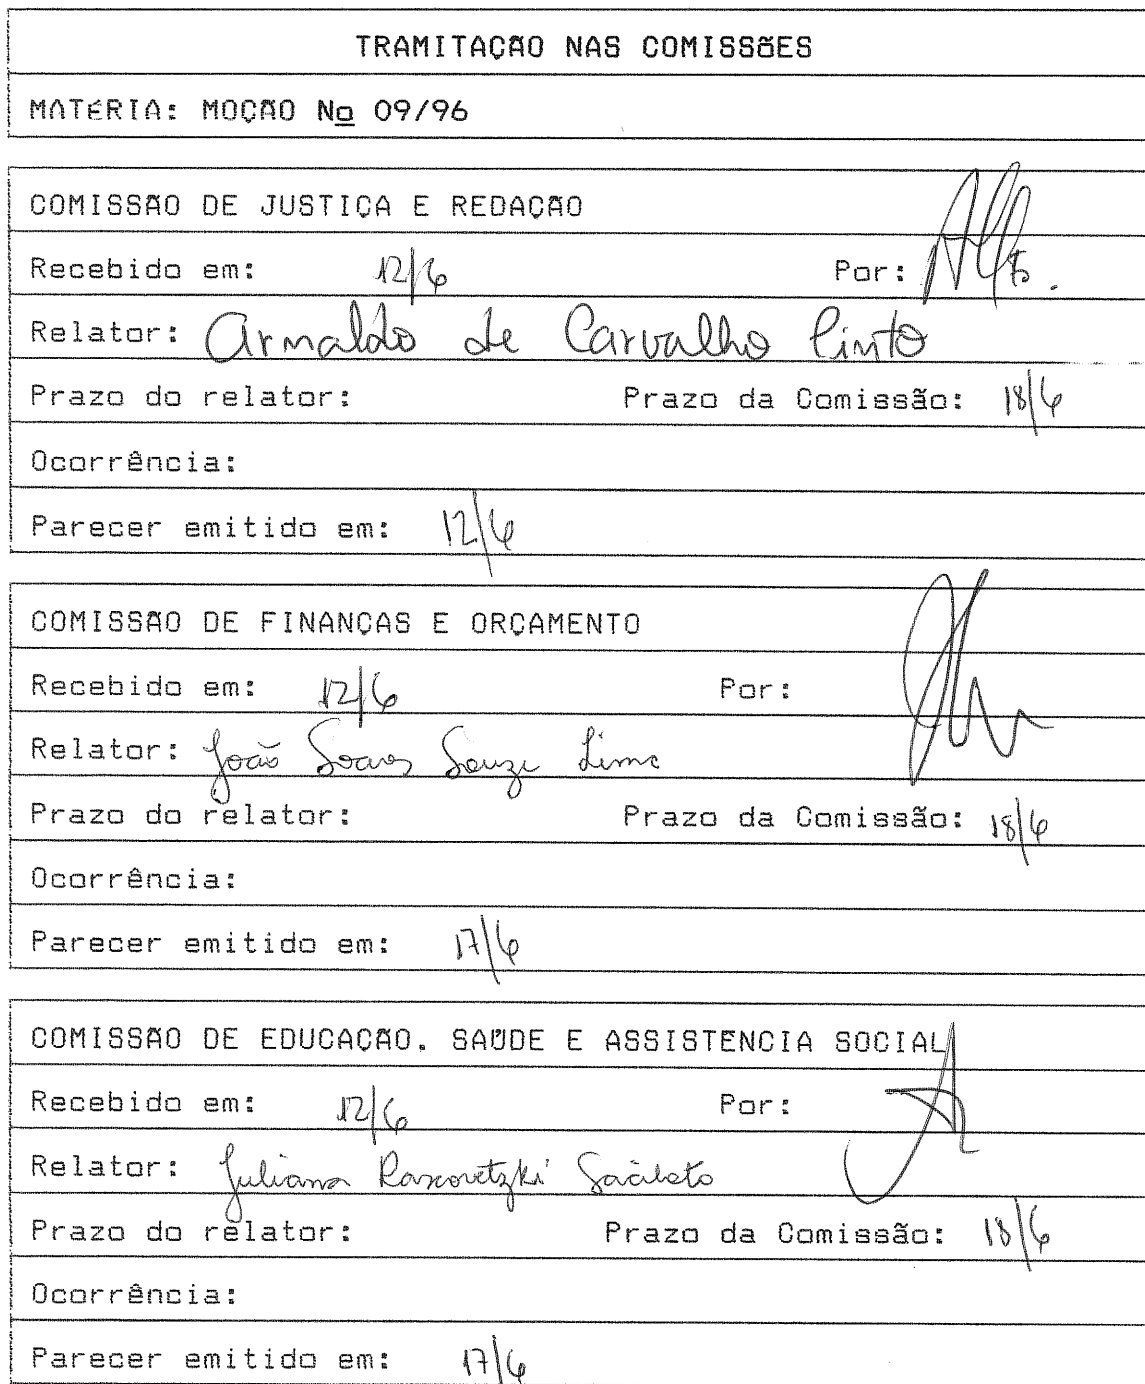 TRAMITAÇÃO NAS COMISSÕES
MATÉRIA: MOÇÃO Nº 09/96
COMISSÃO DE JUSTIÇA E REDAÇÃO
Recebido em: 12/6 Por:
Relator: Arnaldo de Carvalho Pinto
Prazo do relator: Prazo da Comissão: 18/6
Ocorrência:
Parecer emitido em: 12/6
COMISSÃO DE FINANÇAS E ORÇAMENTO
Recebido em: 12/6 Por:
Relator: João Soares Souza Lima
Prazo do relator: Prazo da Comissão: 18/6
Ocorrência:
Parecer emitido em: 17/6
COMISSÃO DE EDUCAÇÃO. SAÚDE E ASSISTENCIA SOCIAL
Recebido em: 12/6 Por:
Relator: Juliana
Prazo do relator: Prazo da Comissão: 18/6
Ocorrência:
Parecer emitido em: 17/6